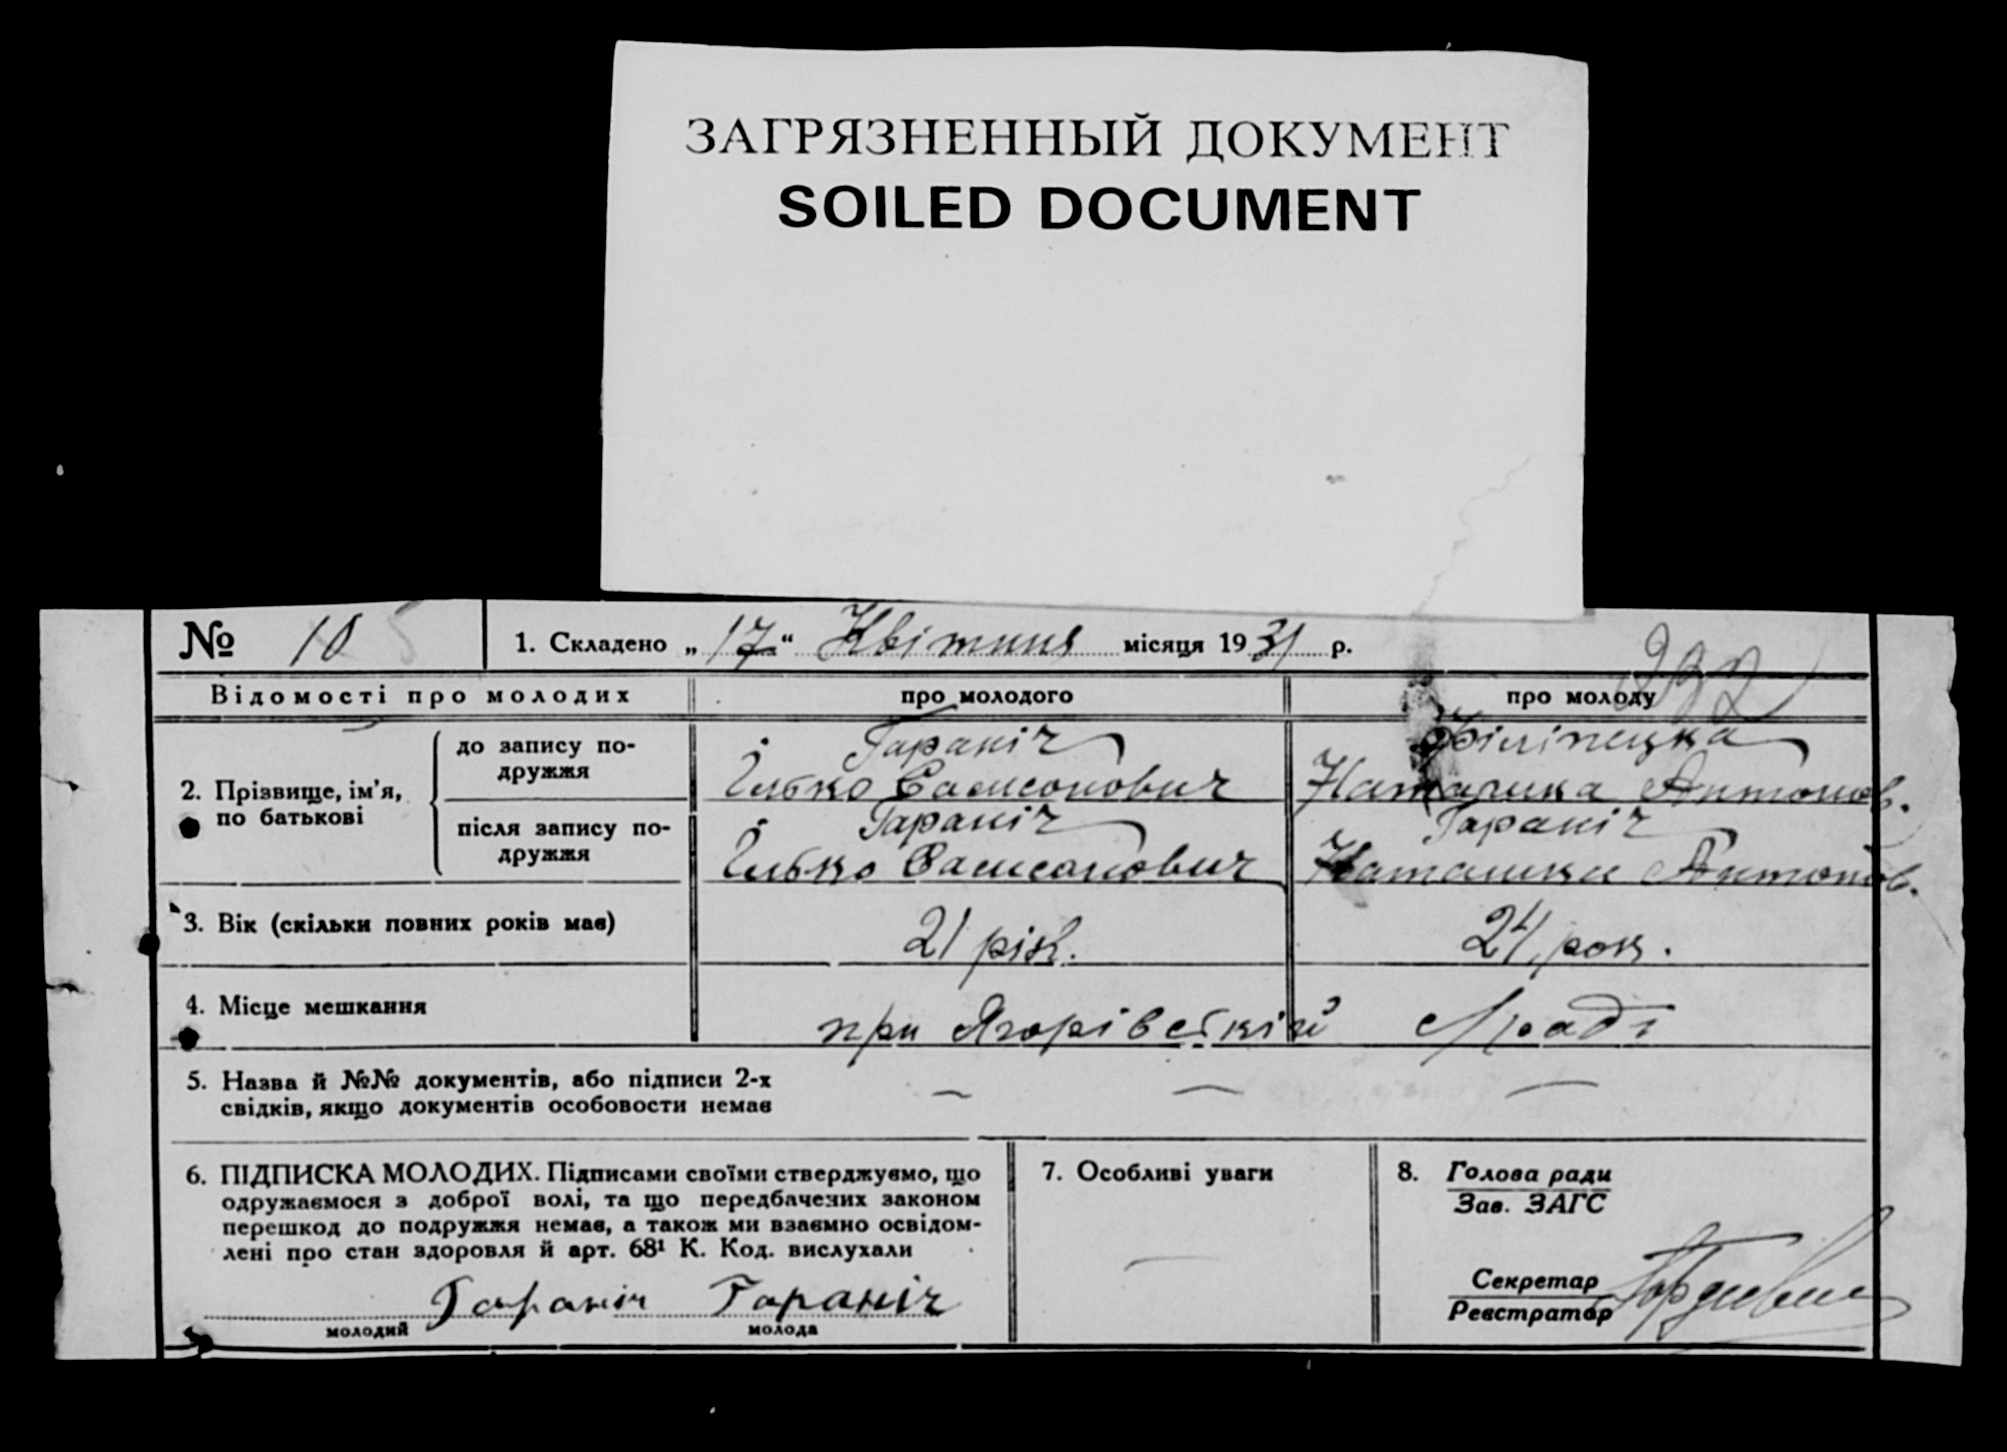 ЗАГРЯЗНЕННЫЙ ДОКУМЕНТ
SOILED DOCUMENT
№ 10
1. Складено „17“ Квітння місяця 1931 р.
932
Відомості про молодих
про молодого
про молоду
2. Прізвище, ім'я, по батькові
до запису по-
дружжя
Гараніч
Ілько Самсонович
Філіпецка
Наталика Антонов.
після запису по-
дружжя
Гараніч
Ілько Самсонович
Гараніч
Антонов.
3. Вік (скільки повних років має)
21 рік.
24 рок.
4. Місце мешкання
при Ягорівській Сраді
5. Назва й №№ документів, або підписи 2-х
свідків, якщо документів особовости немає
— — —
6. ПІДПИСКА МОЛОДИХ. Підписами своїми стверджуємо, що
одружаємося з доброї волі, та що передбачених законом
перешкод до подружжя немає, а також ми взаємно освідом-
лені про стан здоровля й арт. 68¹ К. Код. вислухали
Гараніч Гараніч
молодий молода
7. Особливі уваги
—
8. Голова ради
Зав. ЗАГС
Секретар
Реєстратор